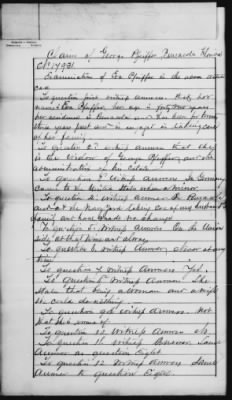 Claim of George Pfeiffer Pensacola Florida
No 17931
Examination of Eva Pfeiffer in the above
case
To question first witness answers. That her
name is Eva Pfeiffer, her age is forty two years
her residence is Pensacola and has been for
three years past and is engaged in taking care
of her family.
To question 2d witness answers that she
is the widow of George Pfeiffer, and
administratrix of his estate
To question 3d witness answers In Germany
came to the United States when a minor
To question 4 witness answers At Pensacola
and at the Navy Yard taking care of my husband &
family and have made no change
To question 5 Witness Answers On the Union
side at that time and always
To question 6 witness Answers,
time
To question 7 witness Answers Yes.
To question 8 Witness Answers. She
states that being a woman and a wife
she could do nothing
To question 9th witness Answers. Not
that she knows of
To question 10 witness Answers No
To question 11 witness Answers Same
Answer as question Eight
To question 12 witness Answers Same
Answer to question Eight